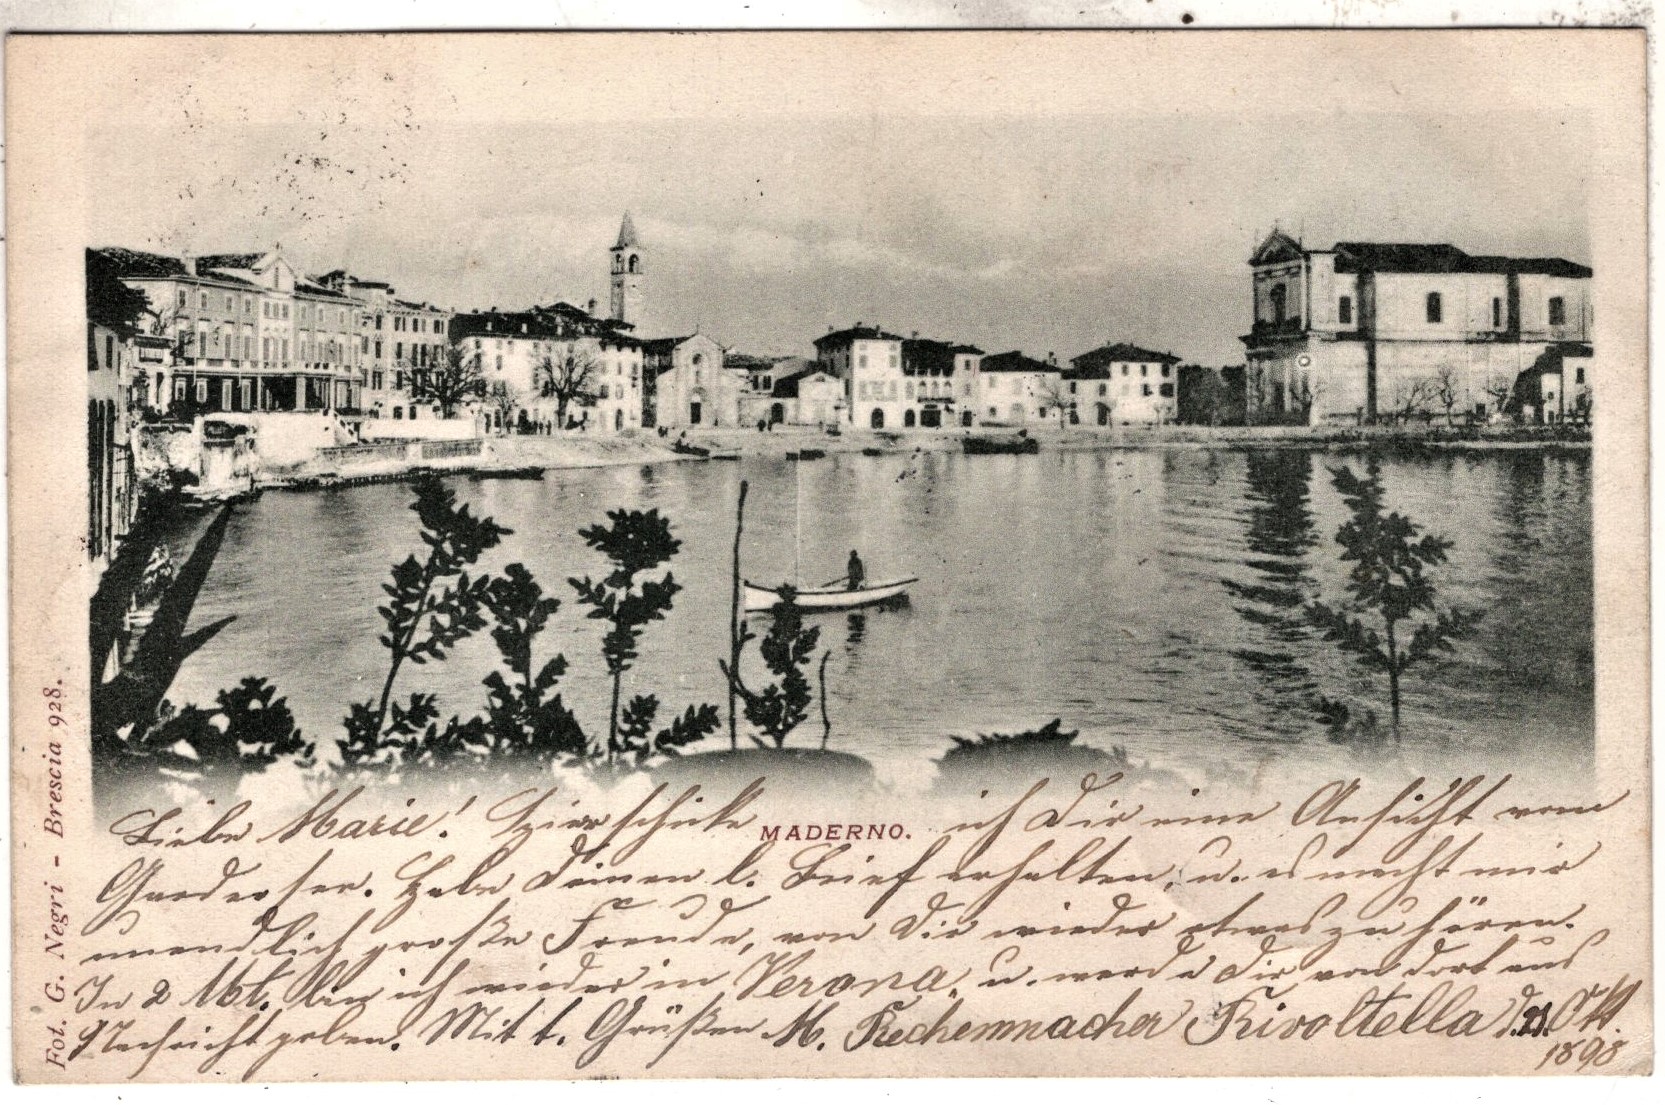 Fot. G. Negri - Brescia 928.
MADERNO.
Liebe Marie! Hier schicke ich Dir eine Ansicht vom
Gardasee. Habe Deinen l. Brief erhalten, u. es macht mir
unendlich große Freude, von Dir wieder etwas zu hören.
In 2 Mt. bin ich wieder in Verona, u. werde Dir von dort aus
Nachricht geben. Mit Grüßen M. Rivoltella d. 23. Okt.
1898